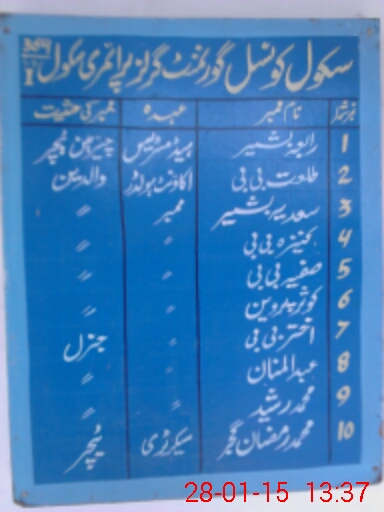 سکول کونسل گورنمنٹ گرلز پرائمری سکول
نمبر شمار نام ممبر عہدہ ممبر کی حیثیت
1 رابعہ بشیر ہیڈ مسٹریس چیئرپرسن ٹیچر
2 طلعت بی بی اکاؤنٹ ہولڈر والدین
3 سعدیہ بشیر ممبر 〃
4 کنیزہ بی بی 〃 〃
5 صفیہ بی بی 〃 〃
6 کوثر پروین 〃 〃
7 اختر بی بی 〃 جنرل
8 عبدالمنان 〃 〃
9 محمد رشید 〃 〃
10 محمد رمضان گجر سیکرٹری ٹیچر
28-01-15 13:37